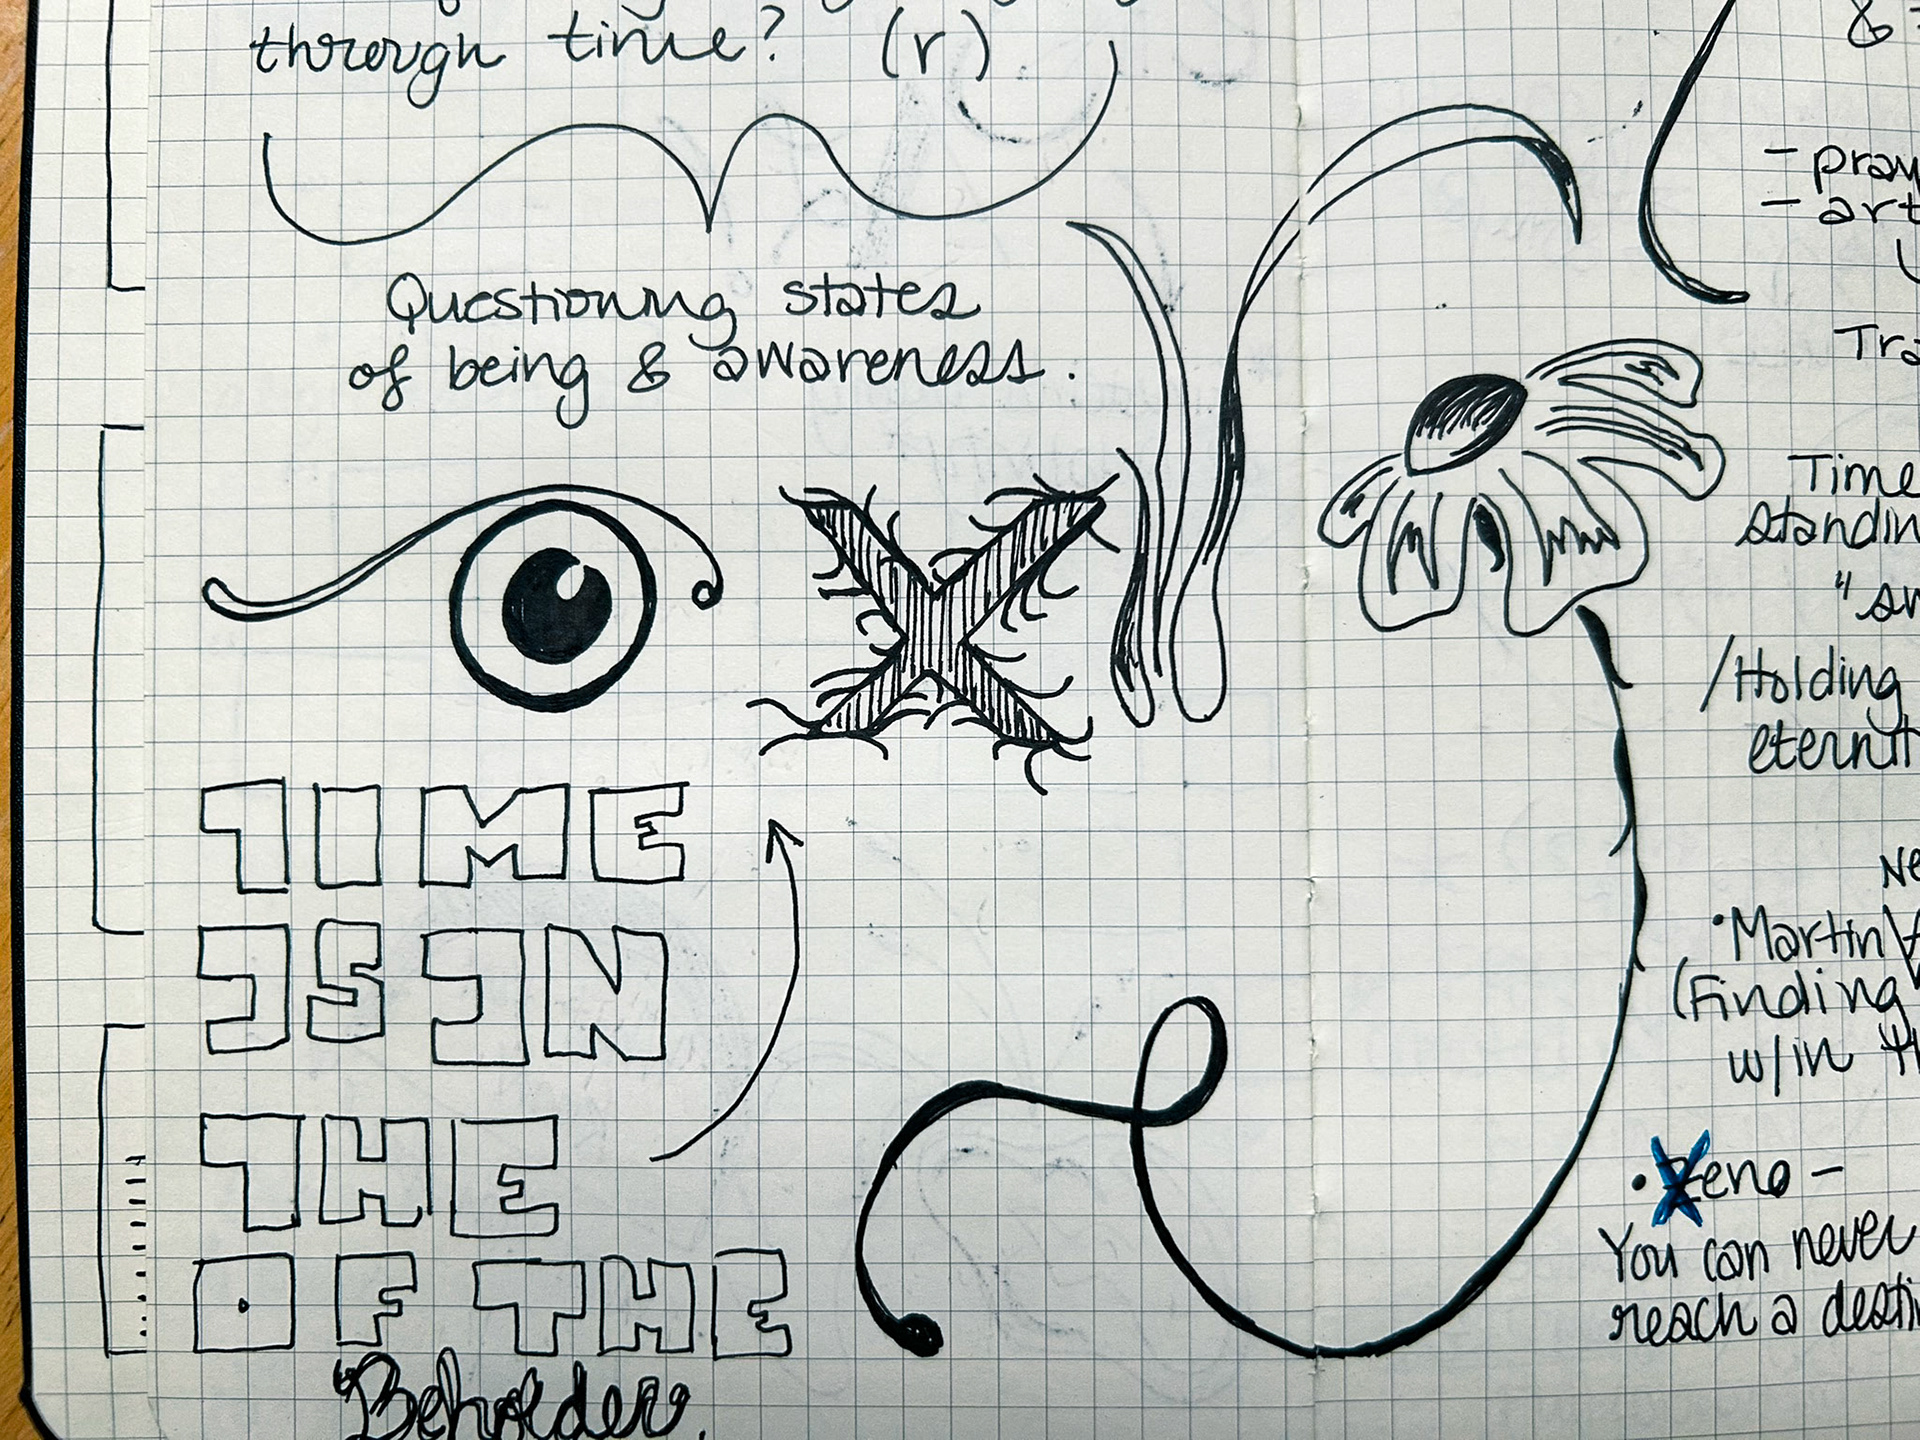 through time? (r)
Questioning states
of being & awareness.
TIME
IS IN
THE
OF THE
"Beholder.
&
- pray
- art
Time
standin
/Holding
eternit
• Martin
(Finding
w/in
• Zeno -
You can never
reach a desti